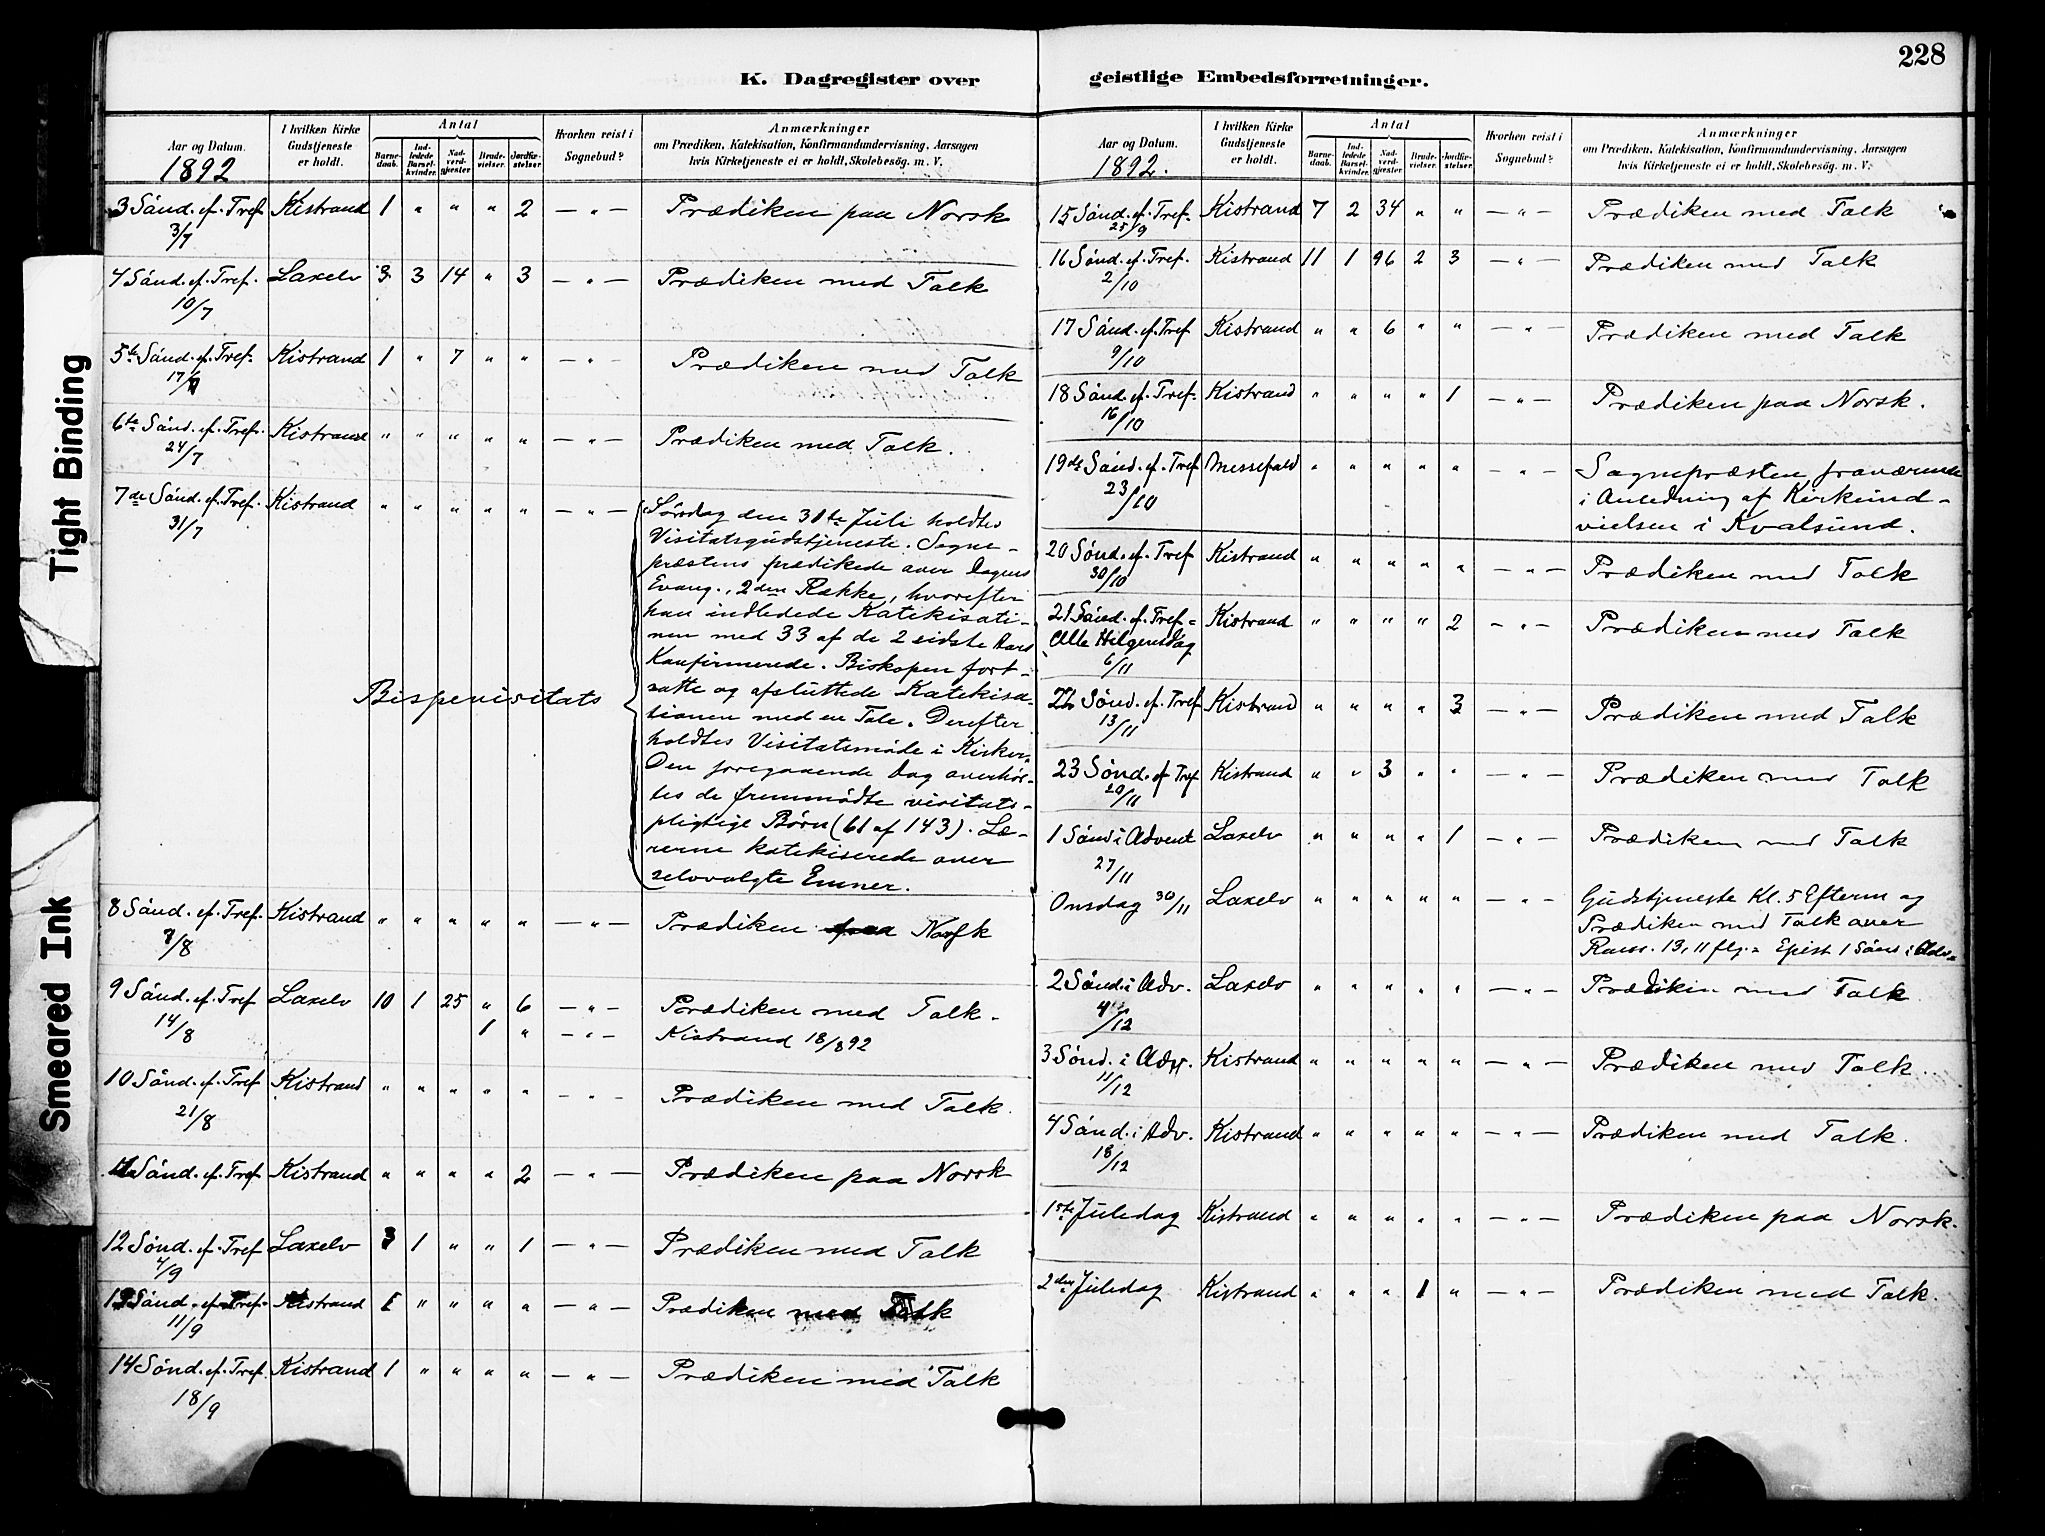 228
K. Dagregister over geistlige Embedsforretninger.
Aar og Datum.
1892
I hvilken Kirke Gudstjeneste er holdt.
Antal
Barne-daab.
Ind-ledede Barsel-kvinder.
Nad-verd-gjæster
Brude-vielser.
Jordfæ-stelser.
Hvorhen reist i Sognebud?
Anmærkninger
om Prædiken, Katekisation, Konfirmandundervisning, Aarsagen
hvis Kirketjeneste ei er holdt, Skolebesög. m. V.
3 Sönd. ef. Tref. 3/7 Kistrand 1 " " " 2 — " — Prædiken paa Norsk
4 Sönd. ef. Tref. 10/7 Laxelv 3 3 14 " 3 — " — Prædiken med Tolk
5te Sönd. ef. Tref. 17/7 Kistrand 1 " 7 " " — " — Prædiken med Tolk
6te Sönd. ef. Tref. 24/7 Kistrand " " " " " — " — Prædiken med Tolk.
7de Sönd. ef. Tref. 31/7 Kistrand " " " " " — " —
Bispevisitats
Söndag den 31te Juli holdtes
Visitatsgudstjeneste. Sogne-
præstens prædikede over Dagens
Evang., 2den Række, hvorefter
han indledede Katekisati-
nen med 33 af de 2 sidste Aars
Konfirmerede. Biskopen fort-
satte og afsluttede Katekisa-
tionen med en Tale. Derefter
holdtes Visitatsmöde i Kirken.
Den foregaaende Dag overhör-
tes de fremmödte visitats-
pligtige Börn (61 af 143). Læ-
rerne katekiserede over
selvvalgte Emner.
8 Sönd. ef. Tref. /8 Kistrand " " " " " — " — Prædiken paa Norsk
9 Sönd. ef. Tref 14/8 Laxelv 10 1 25 " 6 — " — Prædiken med Tolk.
1 " — " — Kistrand 18/8 92
10 Sönd. ef. Tref 21/8 Kistrand " " " " " — " — Prædiken med Tolk.
11 Sönd. ef. Tref Kistrand " " " " 2 — " — Prædiken paa Norsk
12 Sönd. ef. Tref 4/9 Laxelv 3 1 " " 1 — " — Prædiken med Tolk
13 Sönd. ef. Tref. 11/9 Kistrand 1 " " " " — " — Prædiken med Tolk
14 Sönd. ef. Tref. 18/9 Kistrand 1 " " " " — " — Prædiken med Tolk
Aar og Datum.
1892.
I hvilken Kirke Gudstjeneste er holdt.
Antal
Barne-daab.
Ind-ledede Barsel-kvinder.
Nad-verd-gjæster
Brude-vielser.
Jordfæ-stelser.
Hvorhen reist i Sognebud?
Anmærkninger
om Prædiken, Katekisation, Konfirmandundervisning, Aarsagen
hvis Kirketjeneste ei er holdt, Skolebesög. m. V.
15 Sönd. ef. Tref. 25/9 Kistrand 7 2 34 " " — " — Prædiken med Tolk
16 Sönd. ef. Tref. 2/10 Kistrand 11 1 96 2 3 — " — Prædiken med Tolk
17 Sönd. ef. Tref 9/10 Kistrand " " 6 " " — " — Prædiken med Tolk
18 Sönd. ef. Tref. 16/10 Kistrand " " " " 1 — " — Prædiken paa Norsk.
19de Sönd. ef. Tref 23/10 Messefald " " " " " — " — Sognepræsten fraværende
i Anledning af Kirkeind-
vielsen i Kvalsund.
20 Sönd. ef. Tref 30/10 Kistrand " " " " " — " — Prædiken med Tolk
21 Sönd. ef. Tref =
Alle Helgensdag 6/11 Kistrand " " " " 2 — " — Prædiken med Tolk
22 Sönd. ef. Tref 13/11 Kistrand " " " " 3 — " — Prædiken med Tolk
23 Sönd. ef Tref 20/11 Kistrand " " 3 " " — " — Prædiken med Tolk
1 Sönd i Advent 27/11 Laxelv " " " " 1 — " — Prædiken med Tolk
Onsdag 30/11 Laxelv " " " " " — " — Gudstjeneste Kl. 5 Efterm og
Prædiken med Tolk over
Rom. 13, 11 flg. = Epist 1 Sönd i Adv.
2 Sönd. i Adv. 4/12 Laxelv " " " " " — " — Prædiken med Tolk
3 Sönd. i Adv. 11/12 Kistrand " " " " " — " — Prædiken med Tolk.
4 Sönd. i Adv. 18/12 Kistrand " " " " " — " — Prædiken med Tolk.
1ste Juledag Kistrand " " " " " — " — Prædiken paa Norsk.
2den Juledag Kistrand " " " 1 " — " — Prædiken med Tolk.
Tight Binding
Smeared Ink